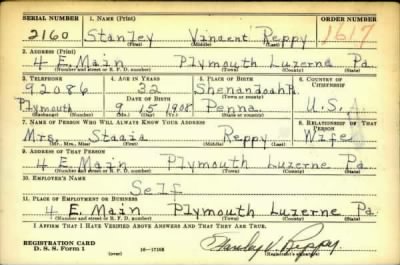 SERIAL NUMBER 1. NAME (Print) ORDER NUMBER
2160 Stanley Vincent Reppy 1617
(First) (Middle) (Last)
2. ADDRESS (Print)
4 E. Main Plymouth Luzerne Pa.
(Number and street or R. F. D. number) (Town) (County) (State)
3. TELEPHONE 4. AGE IN YEARS 5. PLACE OF BIRTH 6. COUNTRY OF CITIZENSHIP
92086 32 Shenandoah
DATE OF BIRTH (Town or county)
Plymouth 9 15 1908 Penna. U.S.A
(Exchange) (Number) (Mo.) (Day) (Yr.) (State or country)
7. NAME OF PERSON WHO WILL ALWAYS KNOW YOUR ADDRESS 8. RELATIONSHIP OF THAT PERSON
Mrs. Stasia Reppy Wife
(Mr., Mrs., Miss) (First) (Middle) (Last)
9. ADDRESS OF THAT PERSON
4 E. Main Plymouth Luzerne Pa.
(Number and street or R. F. D. number) (Town) (County) (State)
10. EMPLOYER'S NAME
Self
11. PLACE OF EMPLOYMENT OR BUSINESS
4 E. Main Plymouth Luzerne Pa.
(Number and street or R. F. D. number) (Town) (County) (State)
I AFFIRM THAT I HAVE VERIFIED ABOVE ANSWERS AND THAT THEY ARE TRUE.
REGISTRATION CARD
D. S. S. Form 1 (over) Stanley V. Reppy
(Registrant's signature)